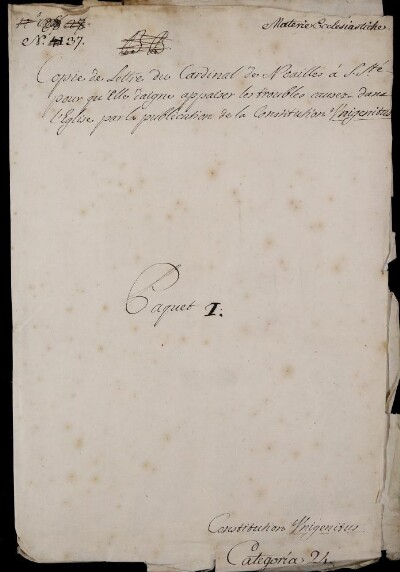 Materie Ecclesiastiche
N.° 137.
Copie de Lettre du Cardinal de Noailles à S. Sté
pour qu'Elle daigne appaiser les troubles causez dans
l'Eglise par la publication de la Constitution Unigenitus
Paquet I.
Constitution Unigenitus
Categoria 24.